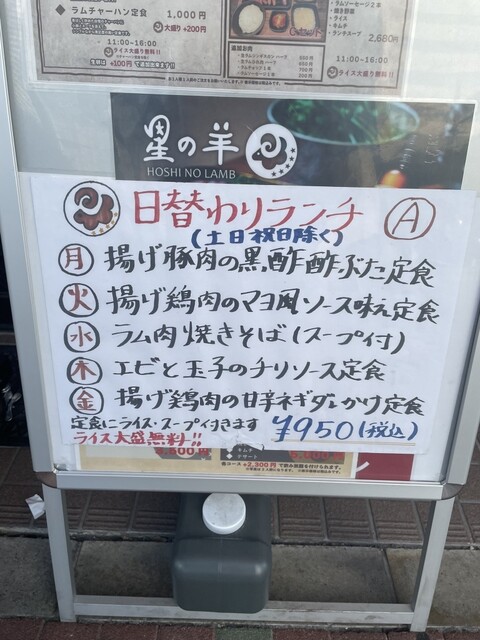 ラムチャーハン定食 1,000円
大盛り+200円
11:00~16:00
ライス大盛り無料!!
+100円
ラムソーセージ2本
・ライス
・キムチ
2,680円
11:00~16:00
ライス大盛り無料!!
星の羊
HOSHI NO LAMB
日替わりランチ A
(土日祝日除く)
月 揚げ豚肉の黒酢酢ぶた定食
火 揚げ鶏肉のマヨ風ソース味え定食
水 ラム肉焼きそば(スープ付)
木 エビと玉子のチリソース定食
金 揚げ鶏肉の甘辛ネギダレかけ定食
定食にライス・スープ付きます ¥950(税込)
ライス大盛無料!!
キムチ
デザート
+2,300円で飲み放題を付けられます。